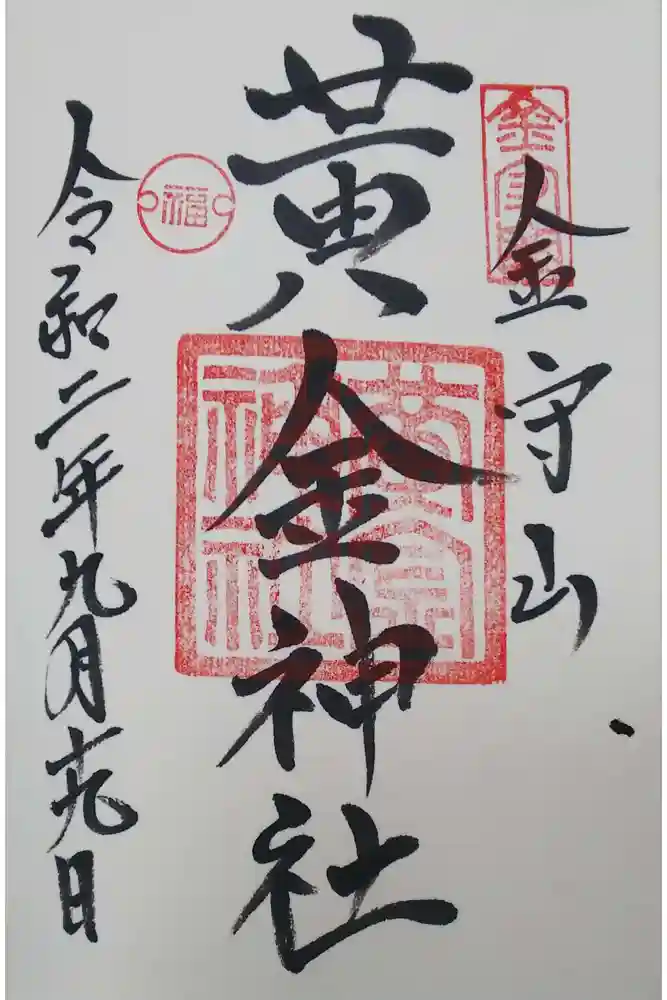 金守山
金守山
黄金神社
黄金神社
福
令和二年九月十九日